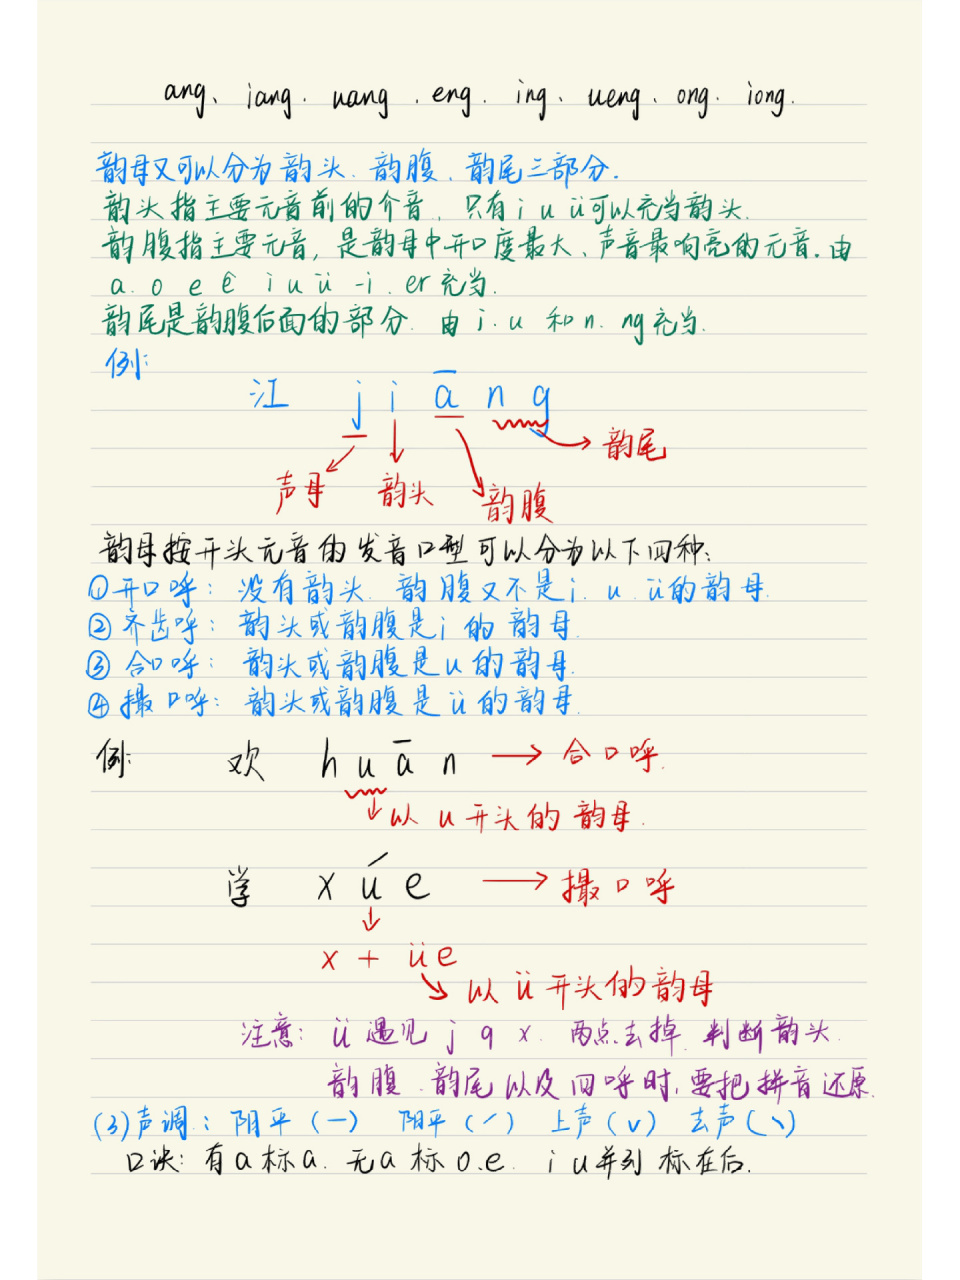 ang、iang. uang .eng. ing、ueng、ong. iong.
韵母又可以分为韵头、韵腹、韵尾三部分.
韵头指主要元音前的介音, 只有i u ü可以充当韵头.
韵腹指主要元音, 是韵母中开口度最大、声音最响亮的元音.由
a. o e ê i u ü -i. er充当.
韵尾是韵腹后面的部分. 由i.u 和n. ng充当.
例:
江 j i ā n g
韵尾
声母 韵头 韵腹
韵母按开头元音的发音口型可以分为以下四种:
①开口呼: 没有韵头. 韵腹又不是i. u. ü的韵母.
②齐齿呼: 韵头或韵腹是i的韵母.
③合口呼: 韵头或韵腹是u的韵母.
④撮口呼: 韵头或韵腹是ü的韵母.
例: 欢 h u ā n → 合口呼.
以u开头的韵母.
学 x ú e → 撮口呼
x + üe
以ü开头的韵母
注意: ü遇见 j q x. 两点去掉. 判断韵头.
韵腹.韵尾以及四呼时,要把拼音还原.
(3)声调: 阴平(一) 阳平(ˊ) 上声(v) 去声(ˋ)
口诀: 有a标a. 无a标o.e. i u并列标在后.